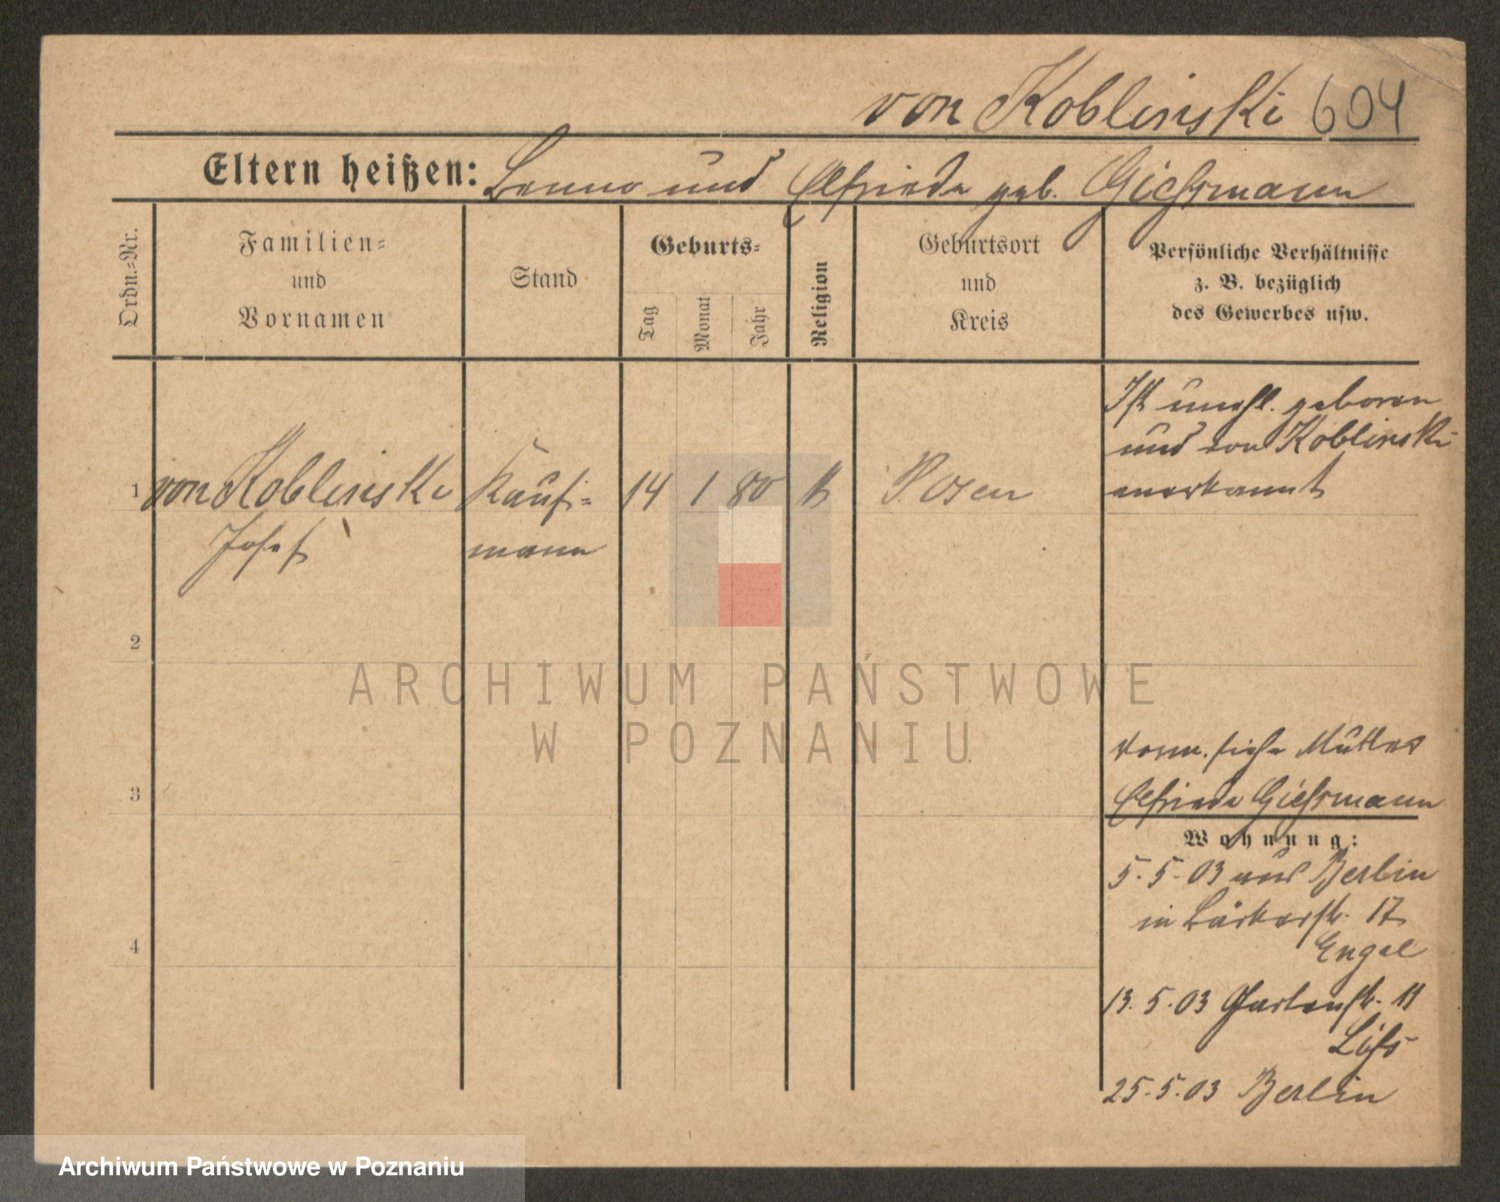 von Koblinski 604
Eltern heißen: Benno und Elfriede geb. Giehrmann
Ordn.-Nr.
Familien-
und
Vornamen
Stand
Geburts-
Tag
Monat
Jahr
Religion
Geburtsort
und
Kreis
Persönliche Verhältnisse
z. B. bezüglich
des Gewerbes usw.
1 von Koblinski Kauf- 14 1 80 k Posen
Josef mann
Ist unehl. geboren
und von Koblinski
anerkannt
2
3
4
vorm. siehe Mutter
Elfriede Giehrmann
Wohnung:
5.5.03 aus Berlin
in 17
Engel
13.5.03 Gartenstr. 11
25.5.03 Berlin
ARCHIWUM PAŃSTWOWE
W POZNANIU
Archiwum Państwowe w Poznaniu